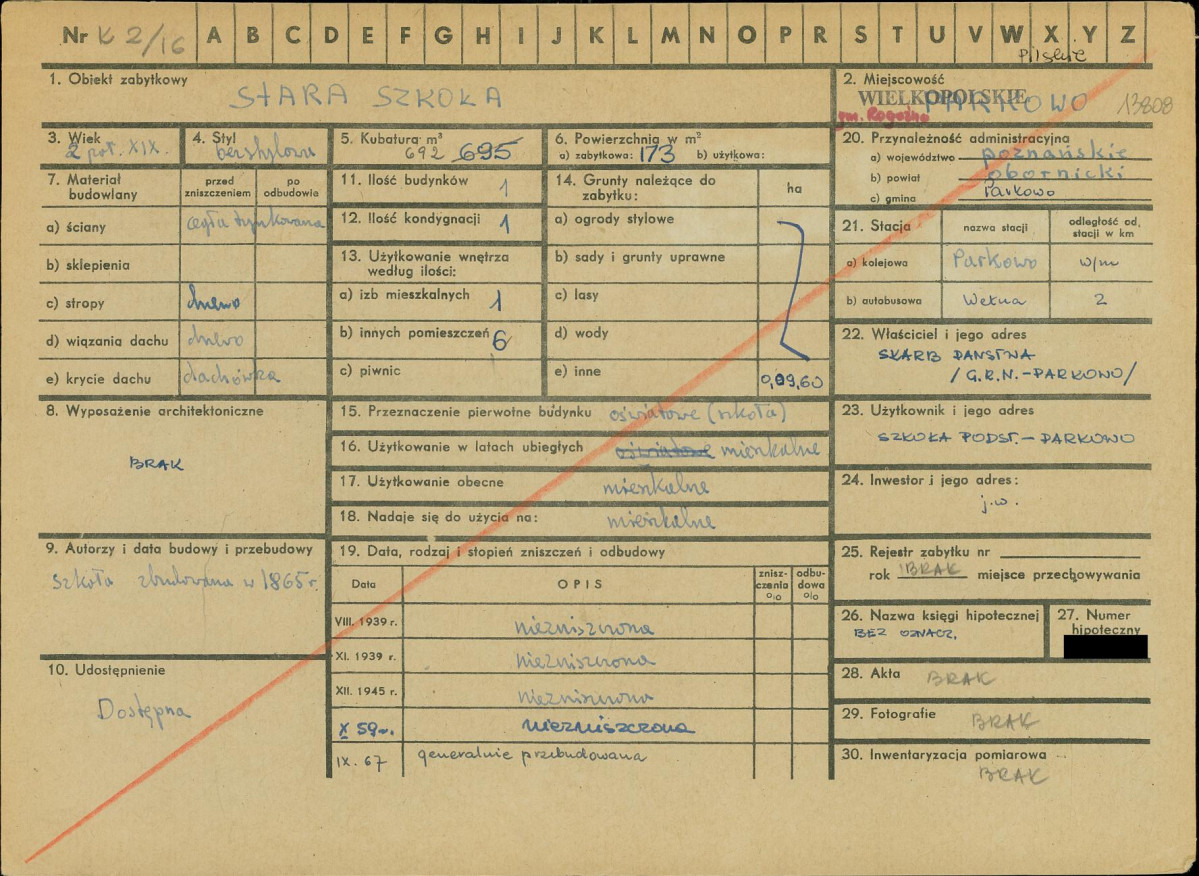 Nr K 2/16 A B C D E F G H I J K L M N O P R S T U V W X Y Z
Pilskie
1. Obiekt zabytkowy
STARA SZKOŁA
2. Miejscowość
WIELKOPOLSKIE
PARKOWO 13808
gm. Rogoźno
3. Wiek
2 poł. XIX.
4. Styl
bezstylowe
5. Kubatura m³
692 695
6. Powierzchnia w m²
a) zabytkowa: 173 b) użytkowa:
7. Materiał budowlany
przed zniszczeniem
po odbudowie
a) ściany cegła tynkowana
b) sklepienia
c) stropy drewno
d) wiązania dachu drewo
e) krycie dachu dachówka
8. Wyposażenie architektoniczne
BRAK
9. Autorzy i data budowy i przebudowy
szkoła zbudowana w 1865 r.
10. Udostępnienie
Dostępna
11. Ilość budynków 1
12. Ilość kondygnacji 1
13. Użytkowanie wnętrza
według ilości:
a) izb mieszkalnych 1
b) innych pomieszczeń 6
c) piwnic
14. Grunty należące do
zabytku:
ha
a) ogrody stylowe
b) sady i grunty uprawne
c) lasy
d) wody
e) inne 0,09,60
15. Przeznaczenie pierwotne budynku oświatowe (szkoła)
16. Użytkowanie w latach ubiegłych oświatowe mieszkalne
17. Użytkowanie obecne mieszkalne
18. Nadaje się do użycia na: mieszkalne
19. Data, rodzaj i stopień zniszczeń i odbudowy
Data OPIS znisz-
czenia
% odbu-
dowa
%
VIII. 1939 r. niezniszczona
XI. 1939 r. niezniszczona
XII. 1945 r. niezniszczona
X 59 r. niezniszczona
IX. 67 generalnie przebudowana
20. Przynależność administracyjna
a) województwo poznańskie
b) powiat obornicki
c) gmina Parkowo
21. Stacja
nazwa stacji
odległość od.
stacji w km
a) kolejowa Parkowo w/m
b) autobusowa Wełna 2
22. Właściciel i jego adres
SKARB PAŃSTWA
/G.R.N.-PARKOWO/
23. Użytkownik i jego adres
SZKOŁA PODST.-PARKOWO
24. Inwestor i jego adres:
j.w.
25. Rejestr zabytku nr
rok BRAK miejsce przechowywania
26. Nazwa księgi hipotecznej
BEZ OZNACZ.
27. Numer
hipoteczny
28. Akta BRAK
29. Fotografie BRAK
30. Inwentaryzacja pomiarowa
BRAK